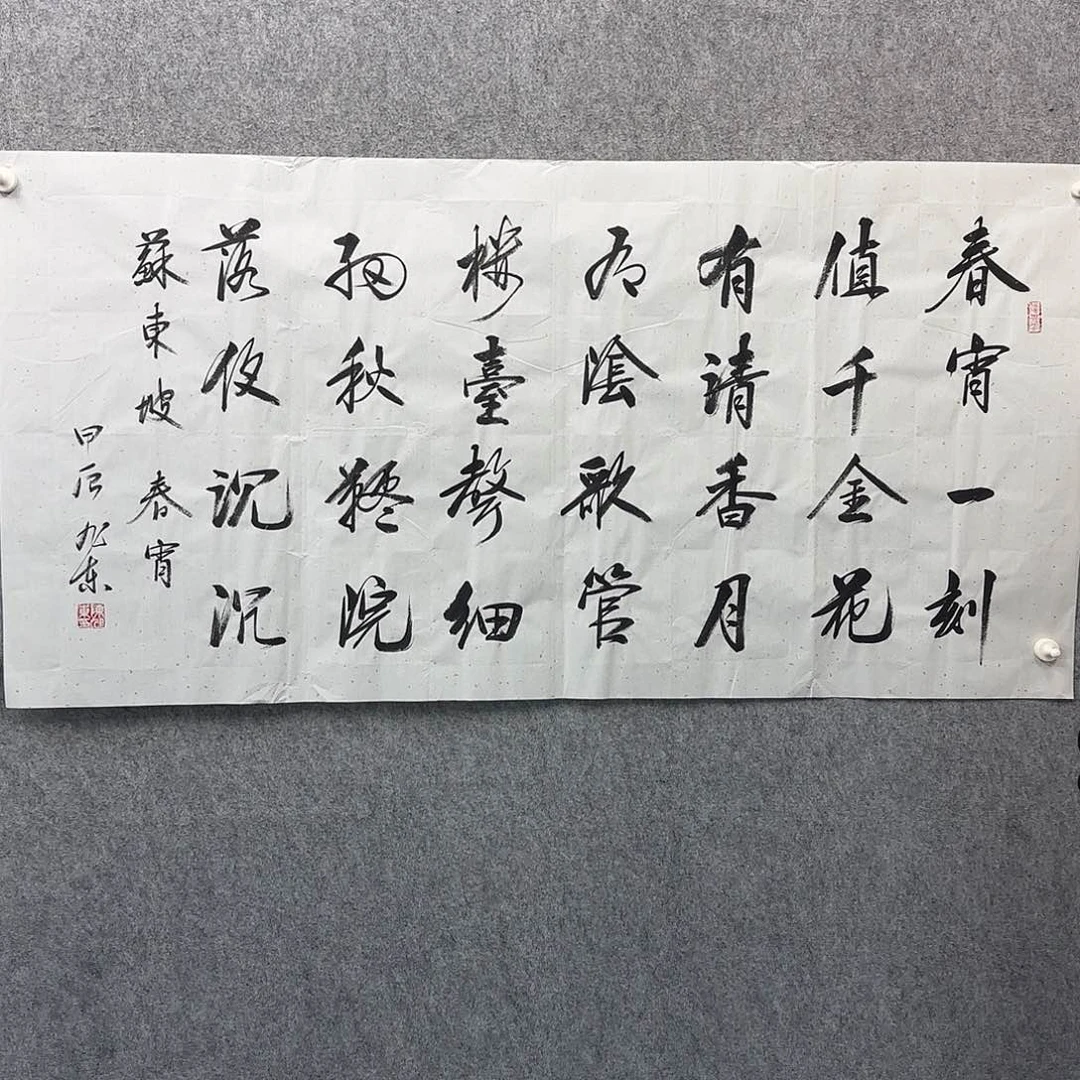 春宵一刻
值千金花
有清香月
有陰歌管
樓臺聲細
細秋韆院
落夜沉沉
蘇東坡 春宵
甲辰 旭东